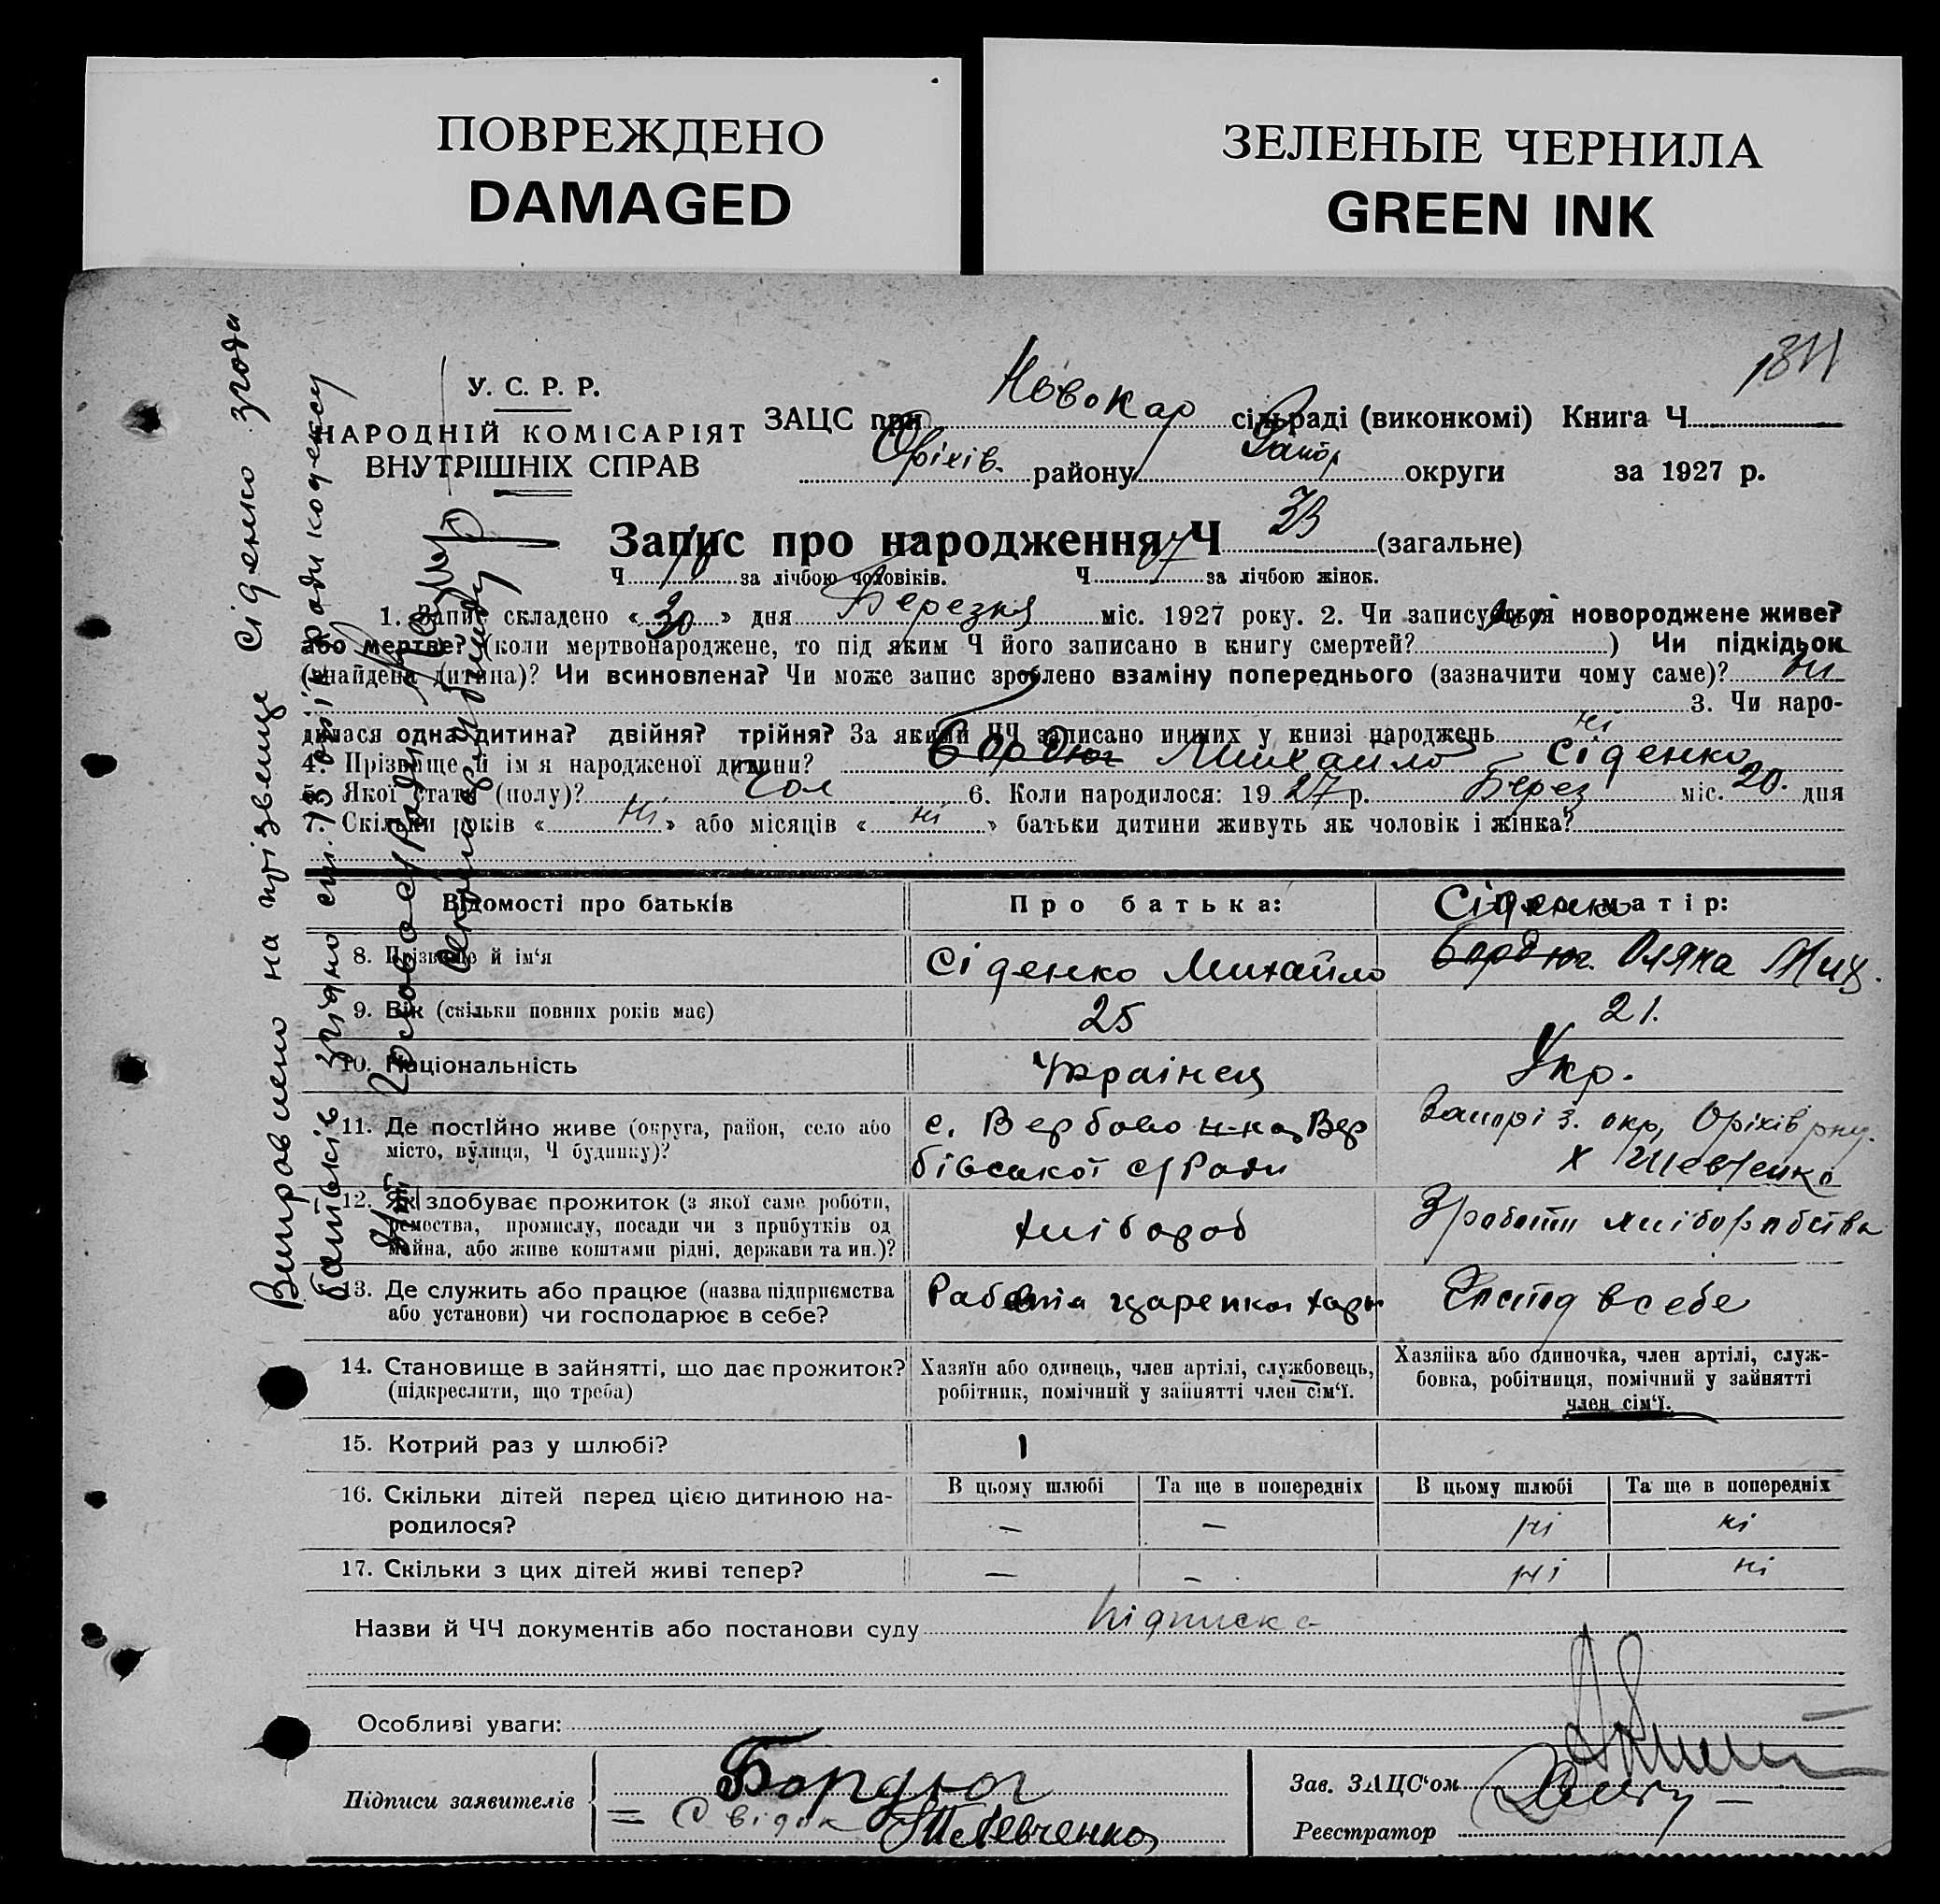 ПОВРЕЖДЕНО
DAMAGED
ЗЕЛЕНЫЕ ЧЕРНИЛА
GREEN INK
У. С. Р. Р.
НАРОДНІЙ КОМІСАРІЯТ
ВНУТРІШНІХ СПРАВ
ЗАЦС при Новокар сільраді (виконкомі) Книга Ч
Оріхів. району Запор округи за 1927 р.
Запис про народження Ч 33 (загальне)
Ч 16 за лічбою чоловіків. Ч 17 за лічбою жінок.
1. Запис складено «30» дня Березня міс. 1927 року. 2. Чи записується новороджене живе?
або мертве? (коли мертвонароджене, то під яким Ч його записано в книгу смертей? ) Чи підкідьок
(знайдена дитина)? Чи всиновлена? Чи може запис зроблено взаміну попереднього (зазначити чому саме)? ні
3. Чи наро-
дилася одна дитина? двійня? трійня? За якими ЧЧ записано инших у книзі народжень ні
4. Прізвище й ім я народженої дитини? Бордюг Михайло Сіденко
5. Якої стати (полу)? Чол 6. Коли народилося: 1927 р. Берез міс. 20. дня
7. Скільки років « ні » або місяців « ні » батьки дитини живуть як чоловік і жінка?
Відомості про батьків
Про батька:
Про матір:
Сіденко
8. Прізвище й ім'я
Сіденко Михайло
Бордюг. Оляна Мих.
9. Вік (скільки повних років має)
25
21.
10. Національність
Українец
Укр.
11. Де постійно живе (округа, район, село або
місто, вулиця, Ч будинку)?
с. Вербово Вер
бівської с/Ради
Запоріз. окр, Оріхів
х Шевченко
12. Як здобуває прожиток (з якої саме роботи,
ремества, промислу, посади чи з прибутків од
майна, або живе коштами рідні, держави та ин.)?
хлібороб
З работи хліборобства
13. Де служить або працює (назва підприємства
або установи) чи господарює в себе?
в себе
14. Становище в зайнятті, що дає прожиток?
(підкреслити, що треба)
Хазяїн або одинець, член артілі, службовець,
робітник, помічний у зайнятті член сім'ї.
Хазяйка або одиночка, член артілі, служ-
бовка, робітниця, помічний у зайнятті
член сім'ї.
15. Котрий раз у шлюбі?
1
16. Скільки дітей перед цією дитиною на-
родилося?
В цьому шлюбі
Та ще в попередніх
В цьому шлюбі
Та ще в попередніх
— — ні ні
17. Скільки з цих дітей живі тепер?
— — ні ні
Назви й ЧЧ документів або постанови суду підписка
Особливі уваги:
Підписи заявителів
Бордюг
= Свідок Шевченко
Зав. ЗАЦС'ом
Реєстратор
Виправлено на прізвище Сіденко згода
батьків згідно ст. кодексу
Голова с/Ради
Секретар